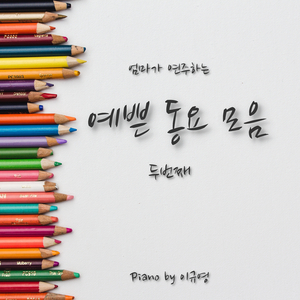 엄마가 연주하는
예쁜 동요 모음
두번째
Piano by 이규영